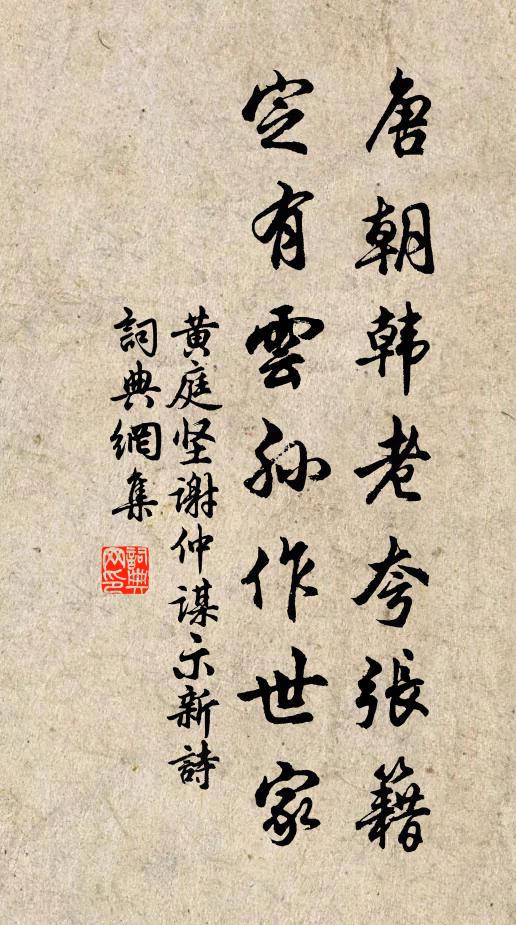 唐朝韩老夸張籍
定有雲孙作世家
黄庭坚谢仲谋示新詩
詞典網集
詞典网印